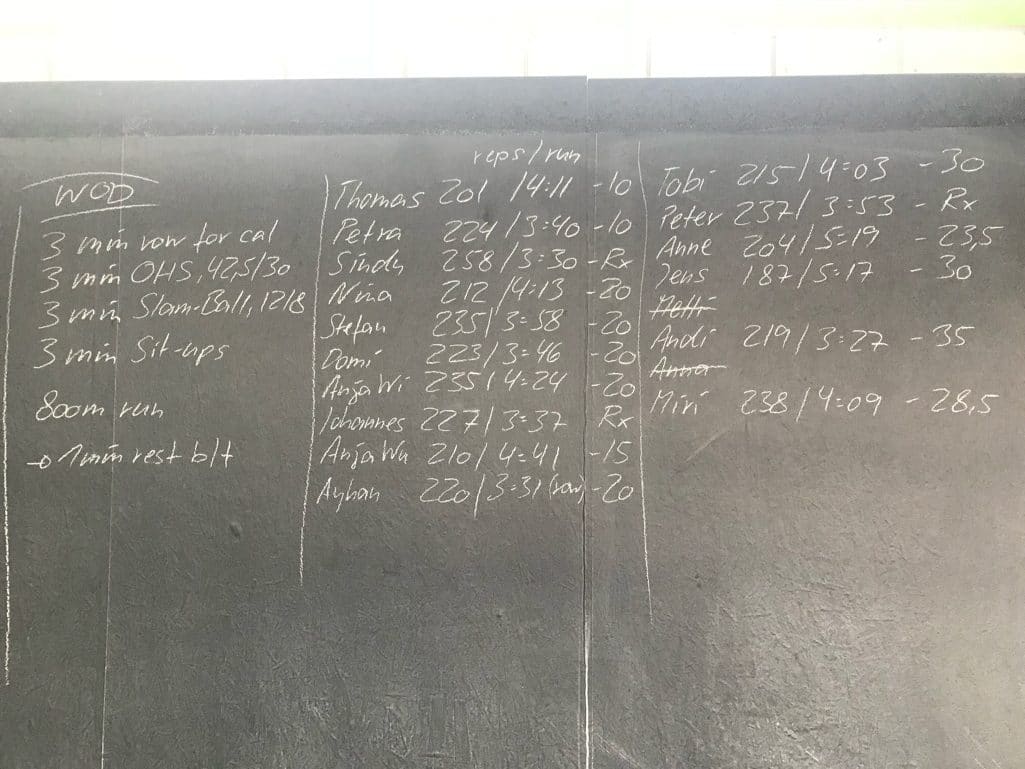 WOD
3 min row for cal
3 min OHS, 42,5/30
3 min Slam-Ball, 12/8
3 min Sit-ups
800m run
→ 1 min rest b/t
reps/run
Thomas 201 /4:11 -10
Petra 224 / 3:40 -10
Sindy 258 / 3:30 - Rx
Nina 212 /4:13 -20
Stefan 235/ 3:58 -20
Domi 223/3:46 -20
Anja Wi 235 / 4:24 -20
Johannes 227/3:37 Rx
Anja Wu 210/ 4:41 -15
Ayhan 220/3:31 (row) -20
Tobi 215 / 4:03 - 30
Peter 237/ 3:53 - Rx
Anne 204/5:19 - 23,5
Jens 187/5:17 - 30
Andi 219/3:27 - 35
Anna
Miri 238 / 4:09 - 28,5